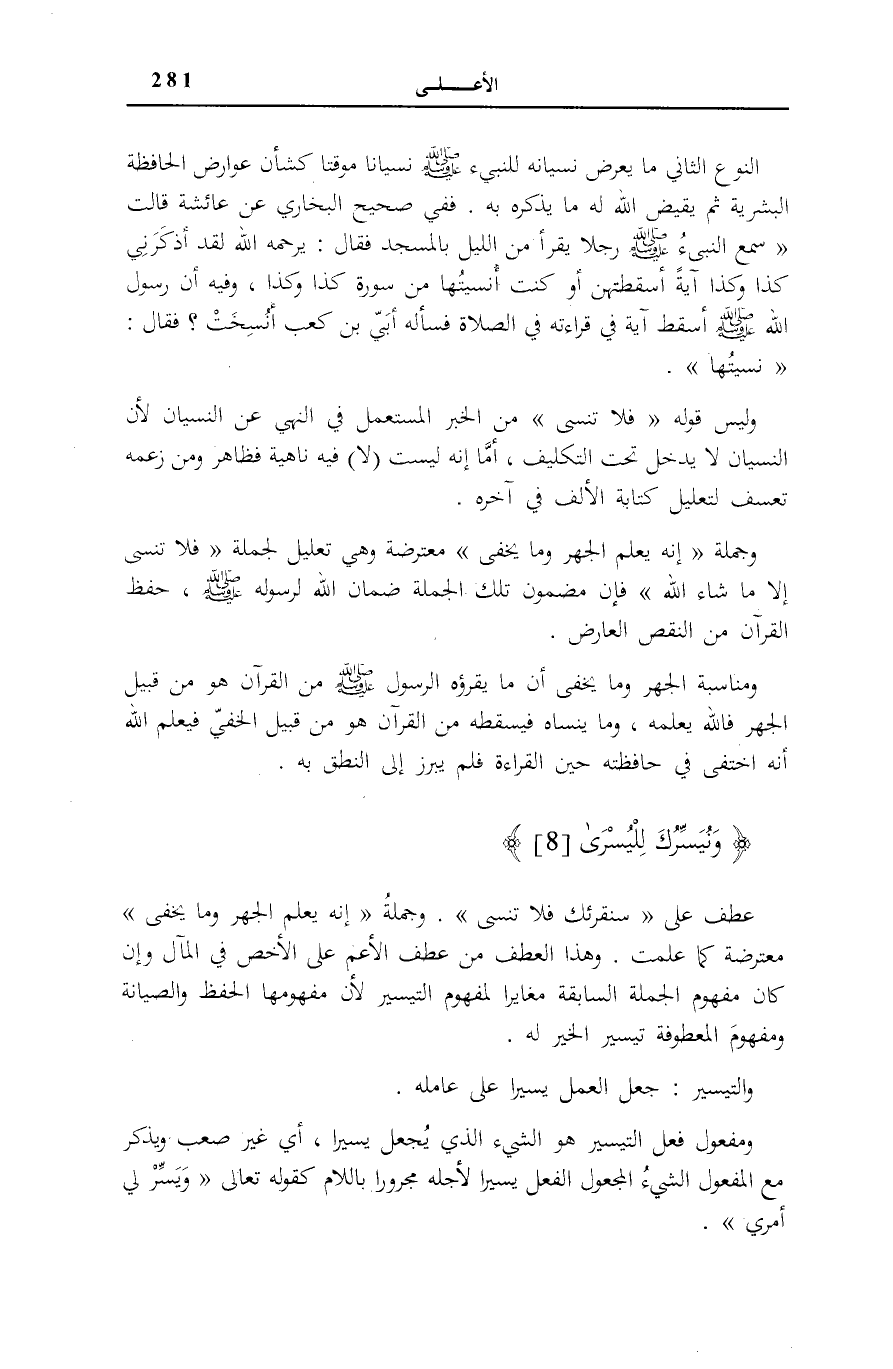 الأعـــلـى 281
النوع الثاني ما يعرض نسيانه للنبيء ﷺ نسيانا موقتا كشأن عوارض الحافظة
البشرية ثم يقيض الله له ما يذكره به . ففي صحيح البخاري عن عائشة قالت
« سمع النبيءُ ﷺ رجلا يقرأ من الليل بالمسجد فقال : يرحمه الله لقد أذكَرَنِي
كذا وكذا آيةً أسقطتهن أو كنت أُنسيتُها من سورة كذا وكذا ، وفيه أن رسول
الله ﷺ أسقط آية في قراءته في الصلاة فسأله أبَيّ بن كعب أَنُسِخَتْ ؟ فقال :
« نسيتُها » .
وليس قوله « فلا تنسى » من الخبر المستعمل في النهي عن النسيان لأن
النسيان لا يدخل تحت التكليف ، أمَّا إنه ليست (لا) فيه ناهية فظاهر ومن زعمه
تعسف لتعليل كتابة الألف في آخره .
وجملة « إنه يعلم الجهر وما يخفى » معترضة وهي تعليل لجملة « فلا تنسى
إلا ما شاء الله » فإن مضمون تلك الجملة ضمان الله لرسوله ﷺ ، حفظ
القرآن من النقص العارض .
ومناسبة الجهر وما يخفى أن ما يقرؤه الرسول ﷺ من القرآن هو من قبيل
الجهر فالله يعلمه ، وما ينساه فيسقطه من القرآن هو من قبيل الخفيّ فيعلم الله
أنه اختفى في حافظته حين القراءة فلم يبرز إلى النطق به .
﴿ وَنُيَسِّرُكَ لِلْيُسْرَىٰ [8] ﴾
عطف على « سنقرئك فلا تنسى » . وجملةُ « إنه يعلم الجهر وما يخفى »
معترضة كما علمت . وهذا العطف من عطف الأعم على الأخص في المآل وإن
كان مفهوم الجملة السابقة مغايرا لمفهوم التيسير لأن مفهومها الحفظ والصيانة
ومفهومَ المعطوفة تيسير الخير له .
والتيسير : جعل العمل يسيرا على عامله .
ومفعول فعل التيسير هو الشيء الذي يُجعل يسيرا ، أي غير صعب ويذكر
مع المفعول الشيءُ المجعول الفعل يسيرا لأجله مجرورا باللام كقوله تعالى « وَيَسِّرْ لي
أمري » .